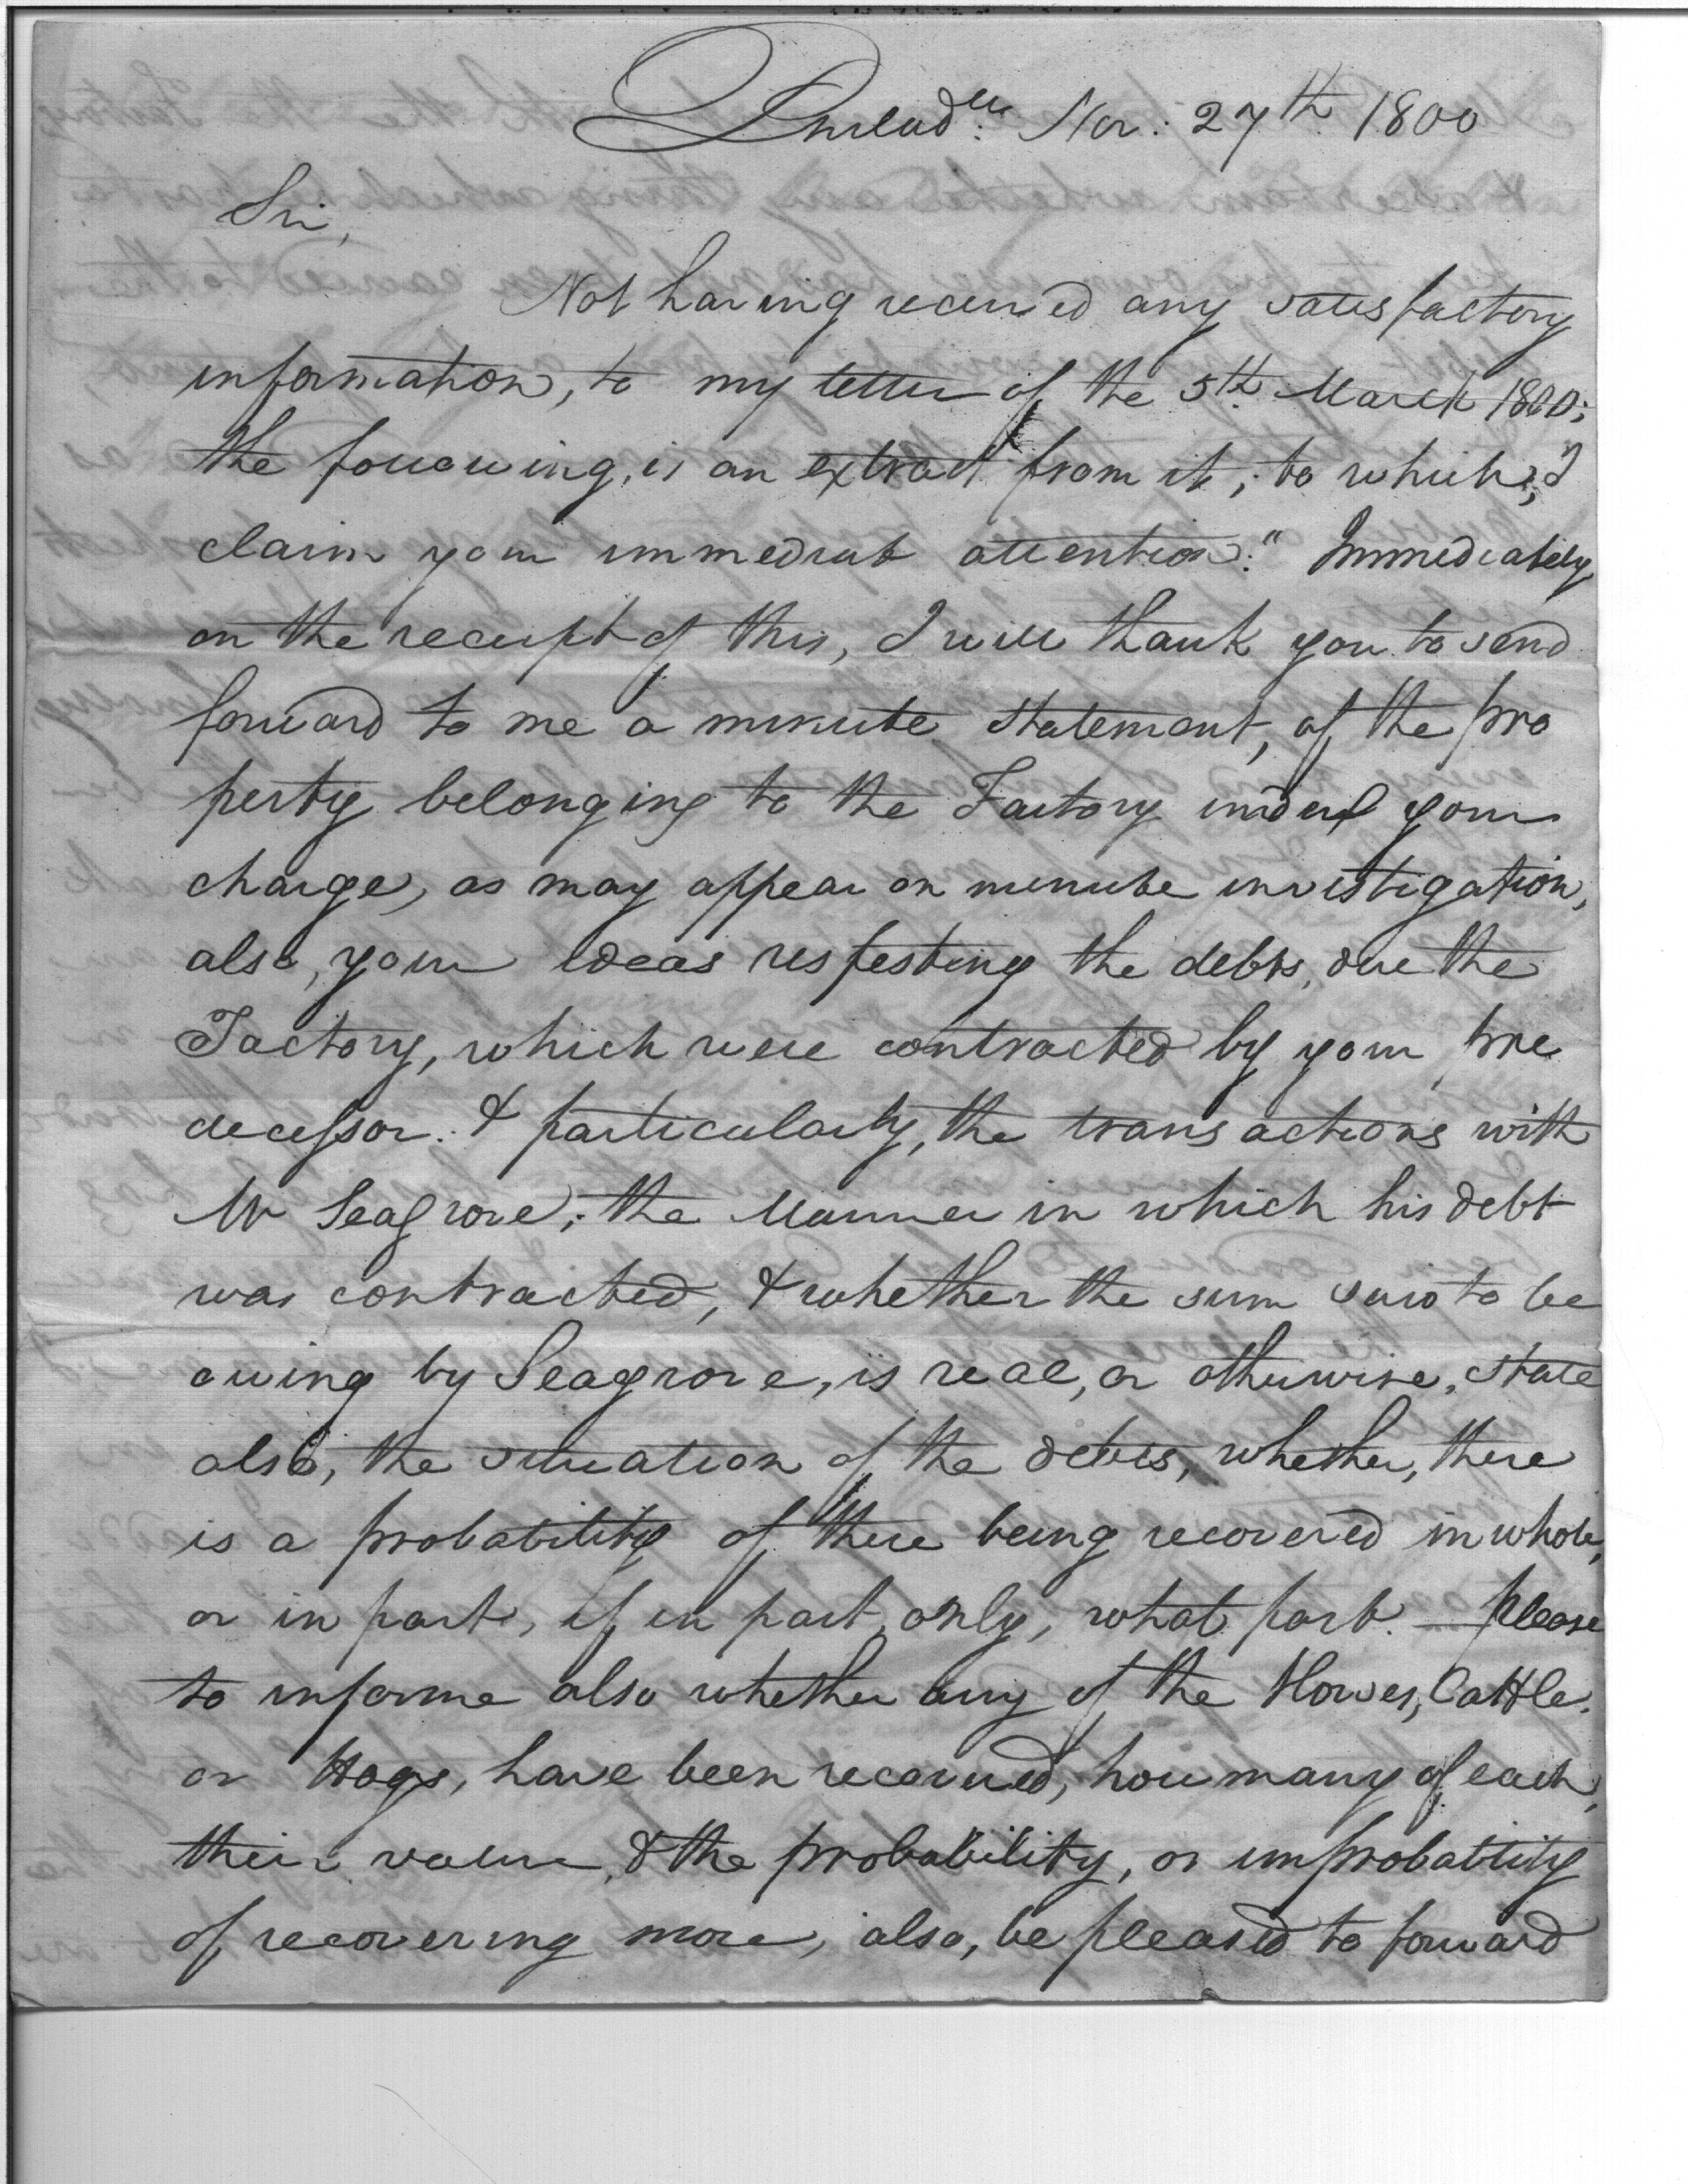 Philad.a Nov: 27th 1800
Sir,
Not having received any satisfactory
information, to my letter of the 5th March 1800;
the following, is an extract from it; to which, I
claim your immediate attention. "Immediately
on the receipt of this, I will thank you to send
forward to me a minute statement, of the pro
perty belonging to the Factory under your
charge, as may appear on minute investigation,
also, your ideas respecting the debts, due the
Factory, which were contracted by your pre
decessor. & particularly, the transactions with
Mr Seagrove; the Manner in which his debt
was contracted, & whether the sum said to be
owing by Seagrove, is real, or otherwise, state
also, the situation of the debts, whether, there
is a probability of there being recovered in whole,
or in part, if in part, only, what part. — please
to informe also whether any of the Horses, Cattle,
or Hogs, have been recovered, how many of each,
their value, & the probability, or improbability
of recovering more, also, be pleased to forward